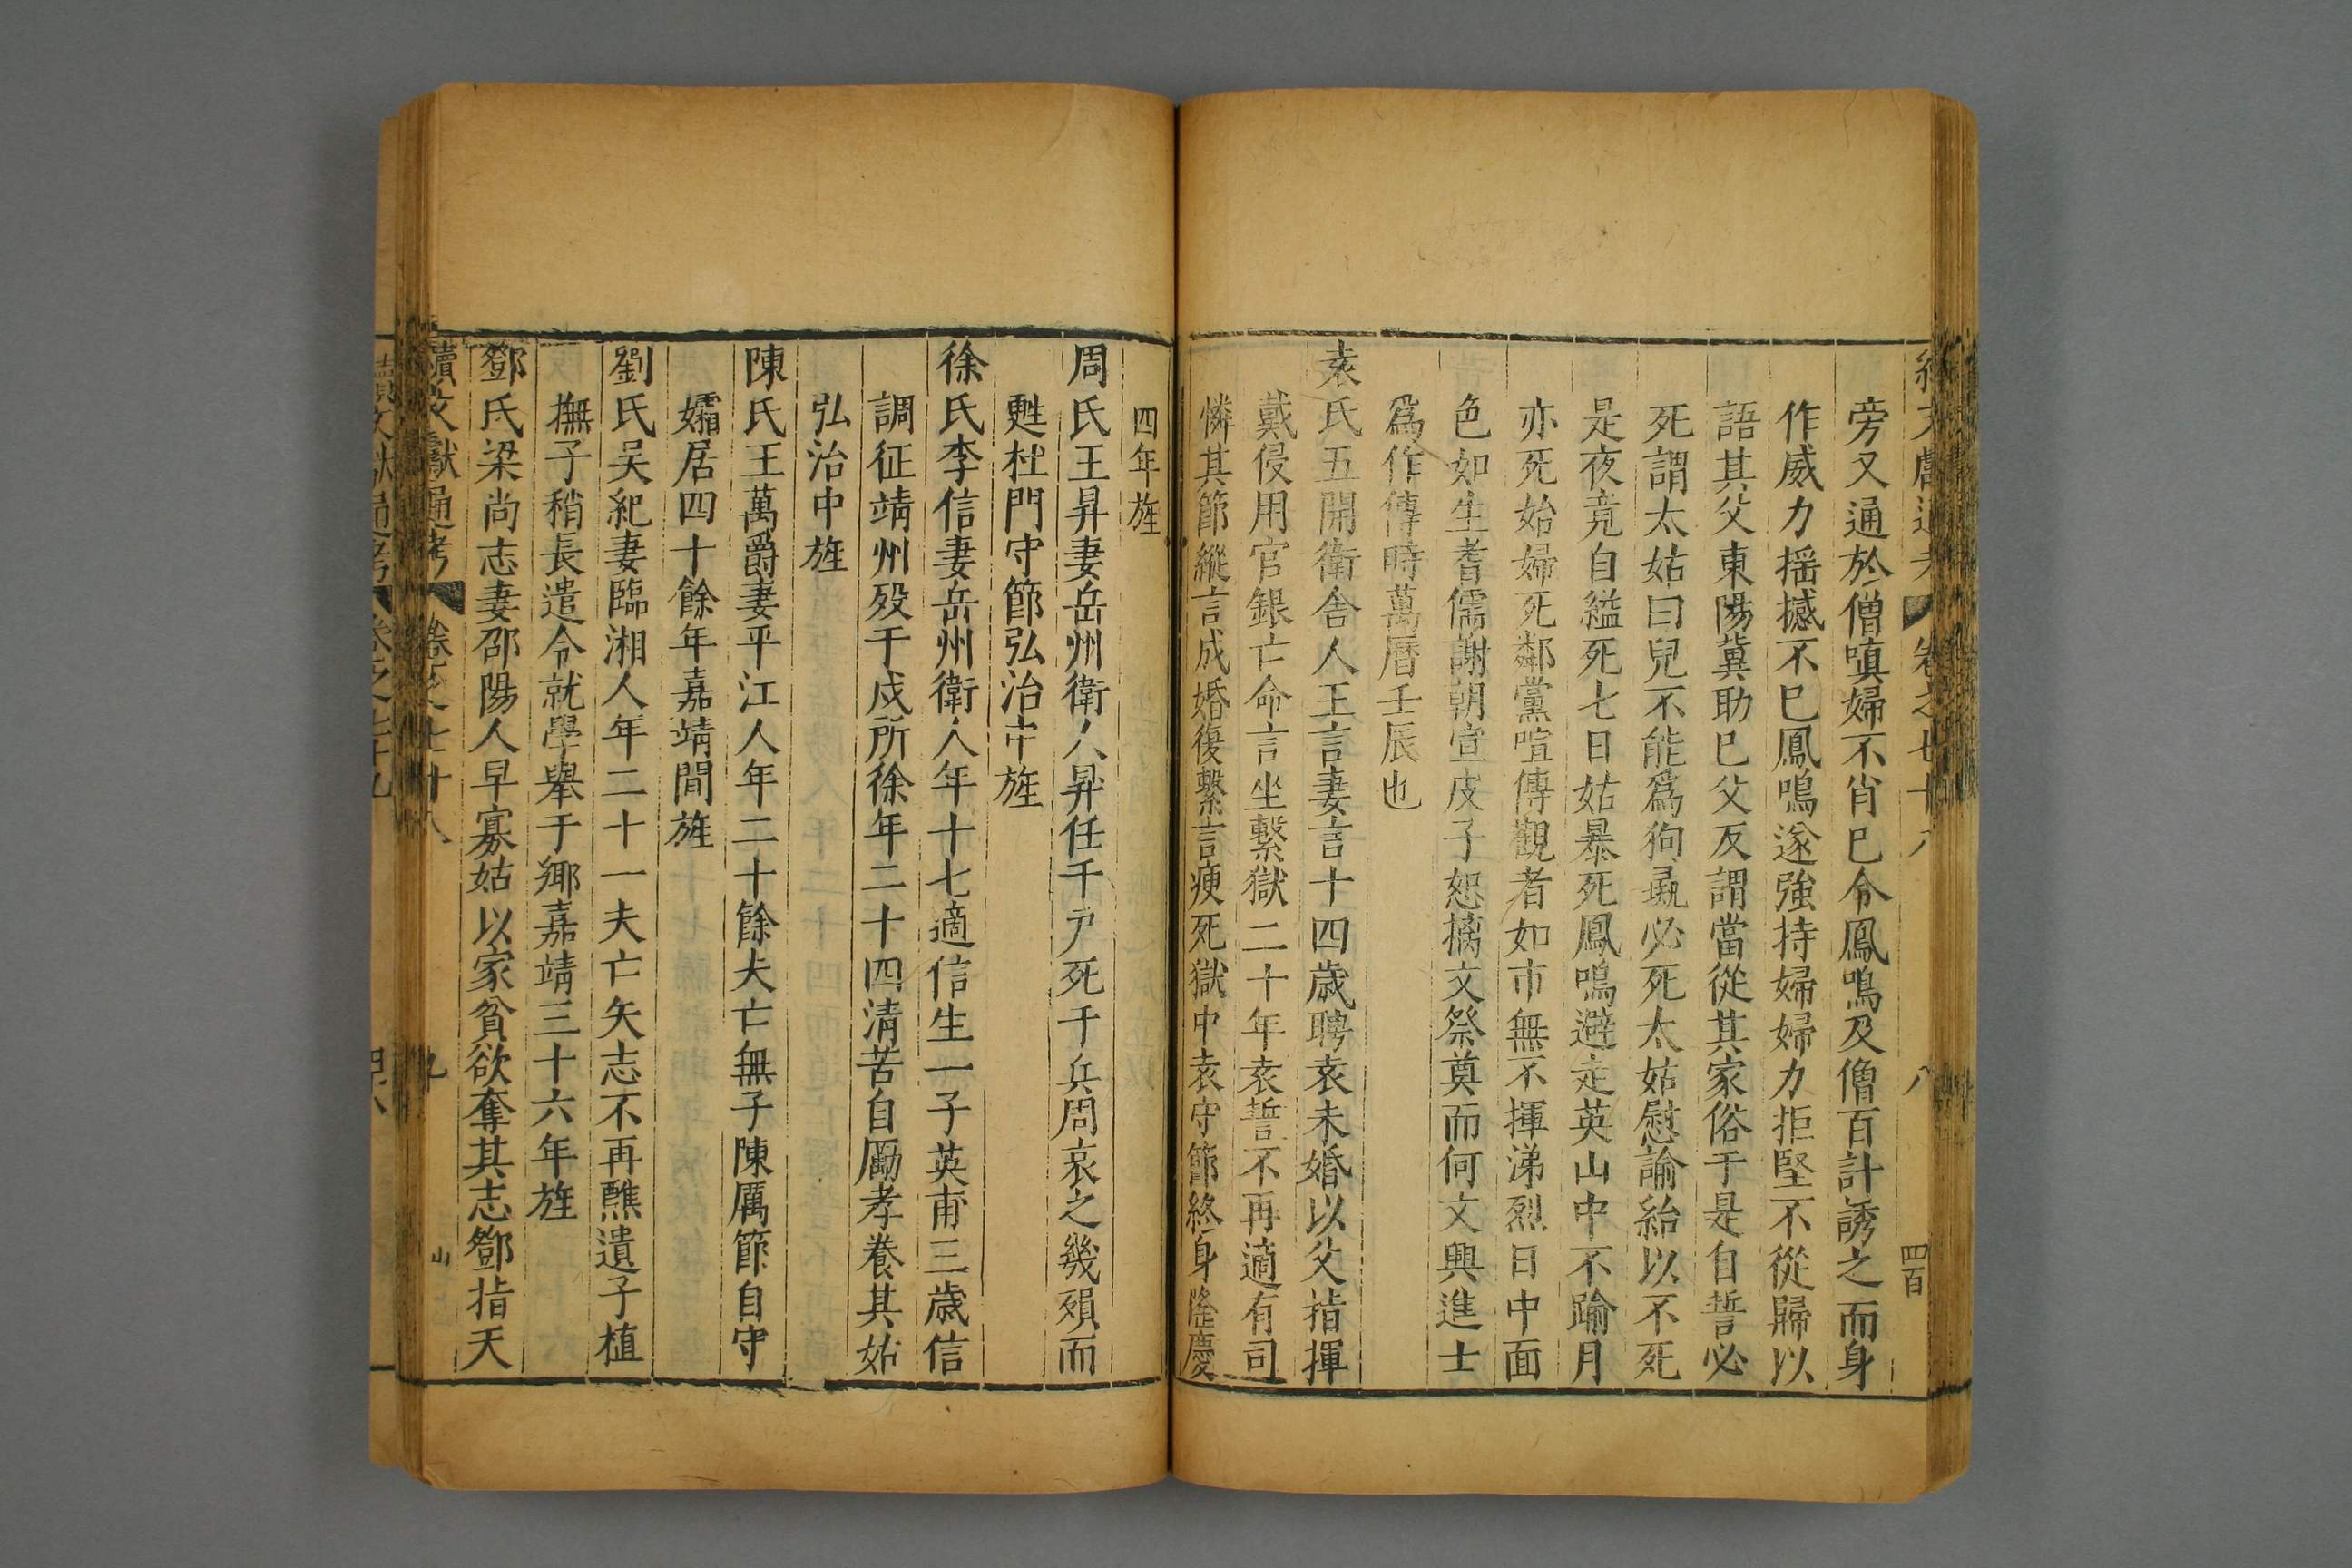 旁又通於僧嗔婦不肖已令鳳鳴及僧百計誘之而身
作威力揺撼不已鳳鳴遂強持婦婦力拒堅不從歸以
語其父東陽冀助已父反謂當從其家俗于是自誓必
死謂太姑曰兒不能爲狗彘必死太姑慰諭紿以不死
是夜竟自縊死七日姑暴死鳳鳴避走英山中不踰月
亦死始婦死鄰黨喧傳觀者如市無不揮涕烈日中面
色如生耆儒謝朝宣皮子恕摛文祭奠而何文興進士
爲作傳時萬曆壬辰也
袁氏五開衛舍人王言妻言十四歳聘袁未婚以父指揮
戴侵用官銀亡命言坐繫獄二十年袁誓不再適有司
憐其節縱言成婚復繫言瘐死獄中袁守節終身隆慶
四年旌
周氏王昇妻岳州衛人昇任千戸死于兵周哀之幾殞而
甦杜門守節弘治中旌
徐氏李信妻岳州衛人年十七適信生一子英甫三歳信
調征靖州歿于戍所徐年二十四清苦自勵孝養其姑
弘治中旌
陳氏王萬爵妻平江人年二十餘夫亡無子陳厲節自守
孀居四十餘年嘉靖間旌
劉氏吴紀妻臨湘人年二十一夫亡矢志不再醮遺子植
撫子稍長遣令就學舉于鄉嘉靖三十六年旌
鄧氏梁尚志妻邵陽人早寡姑以家貧欲奪其志鄧指天
續文獻通考 卷之七十八 九